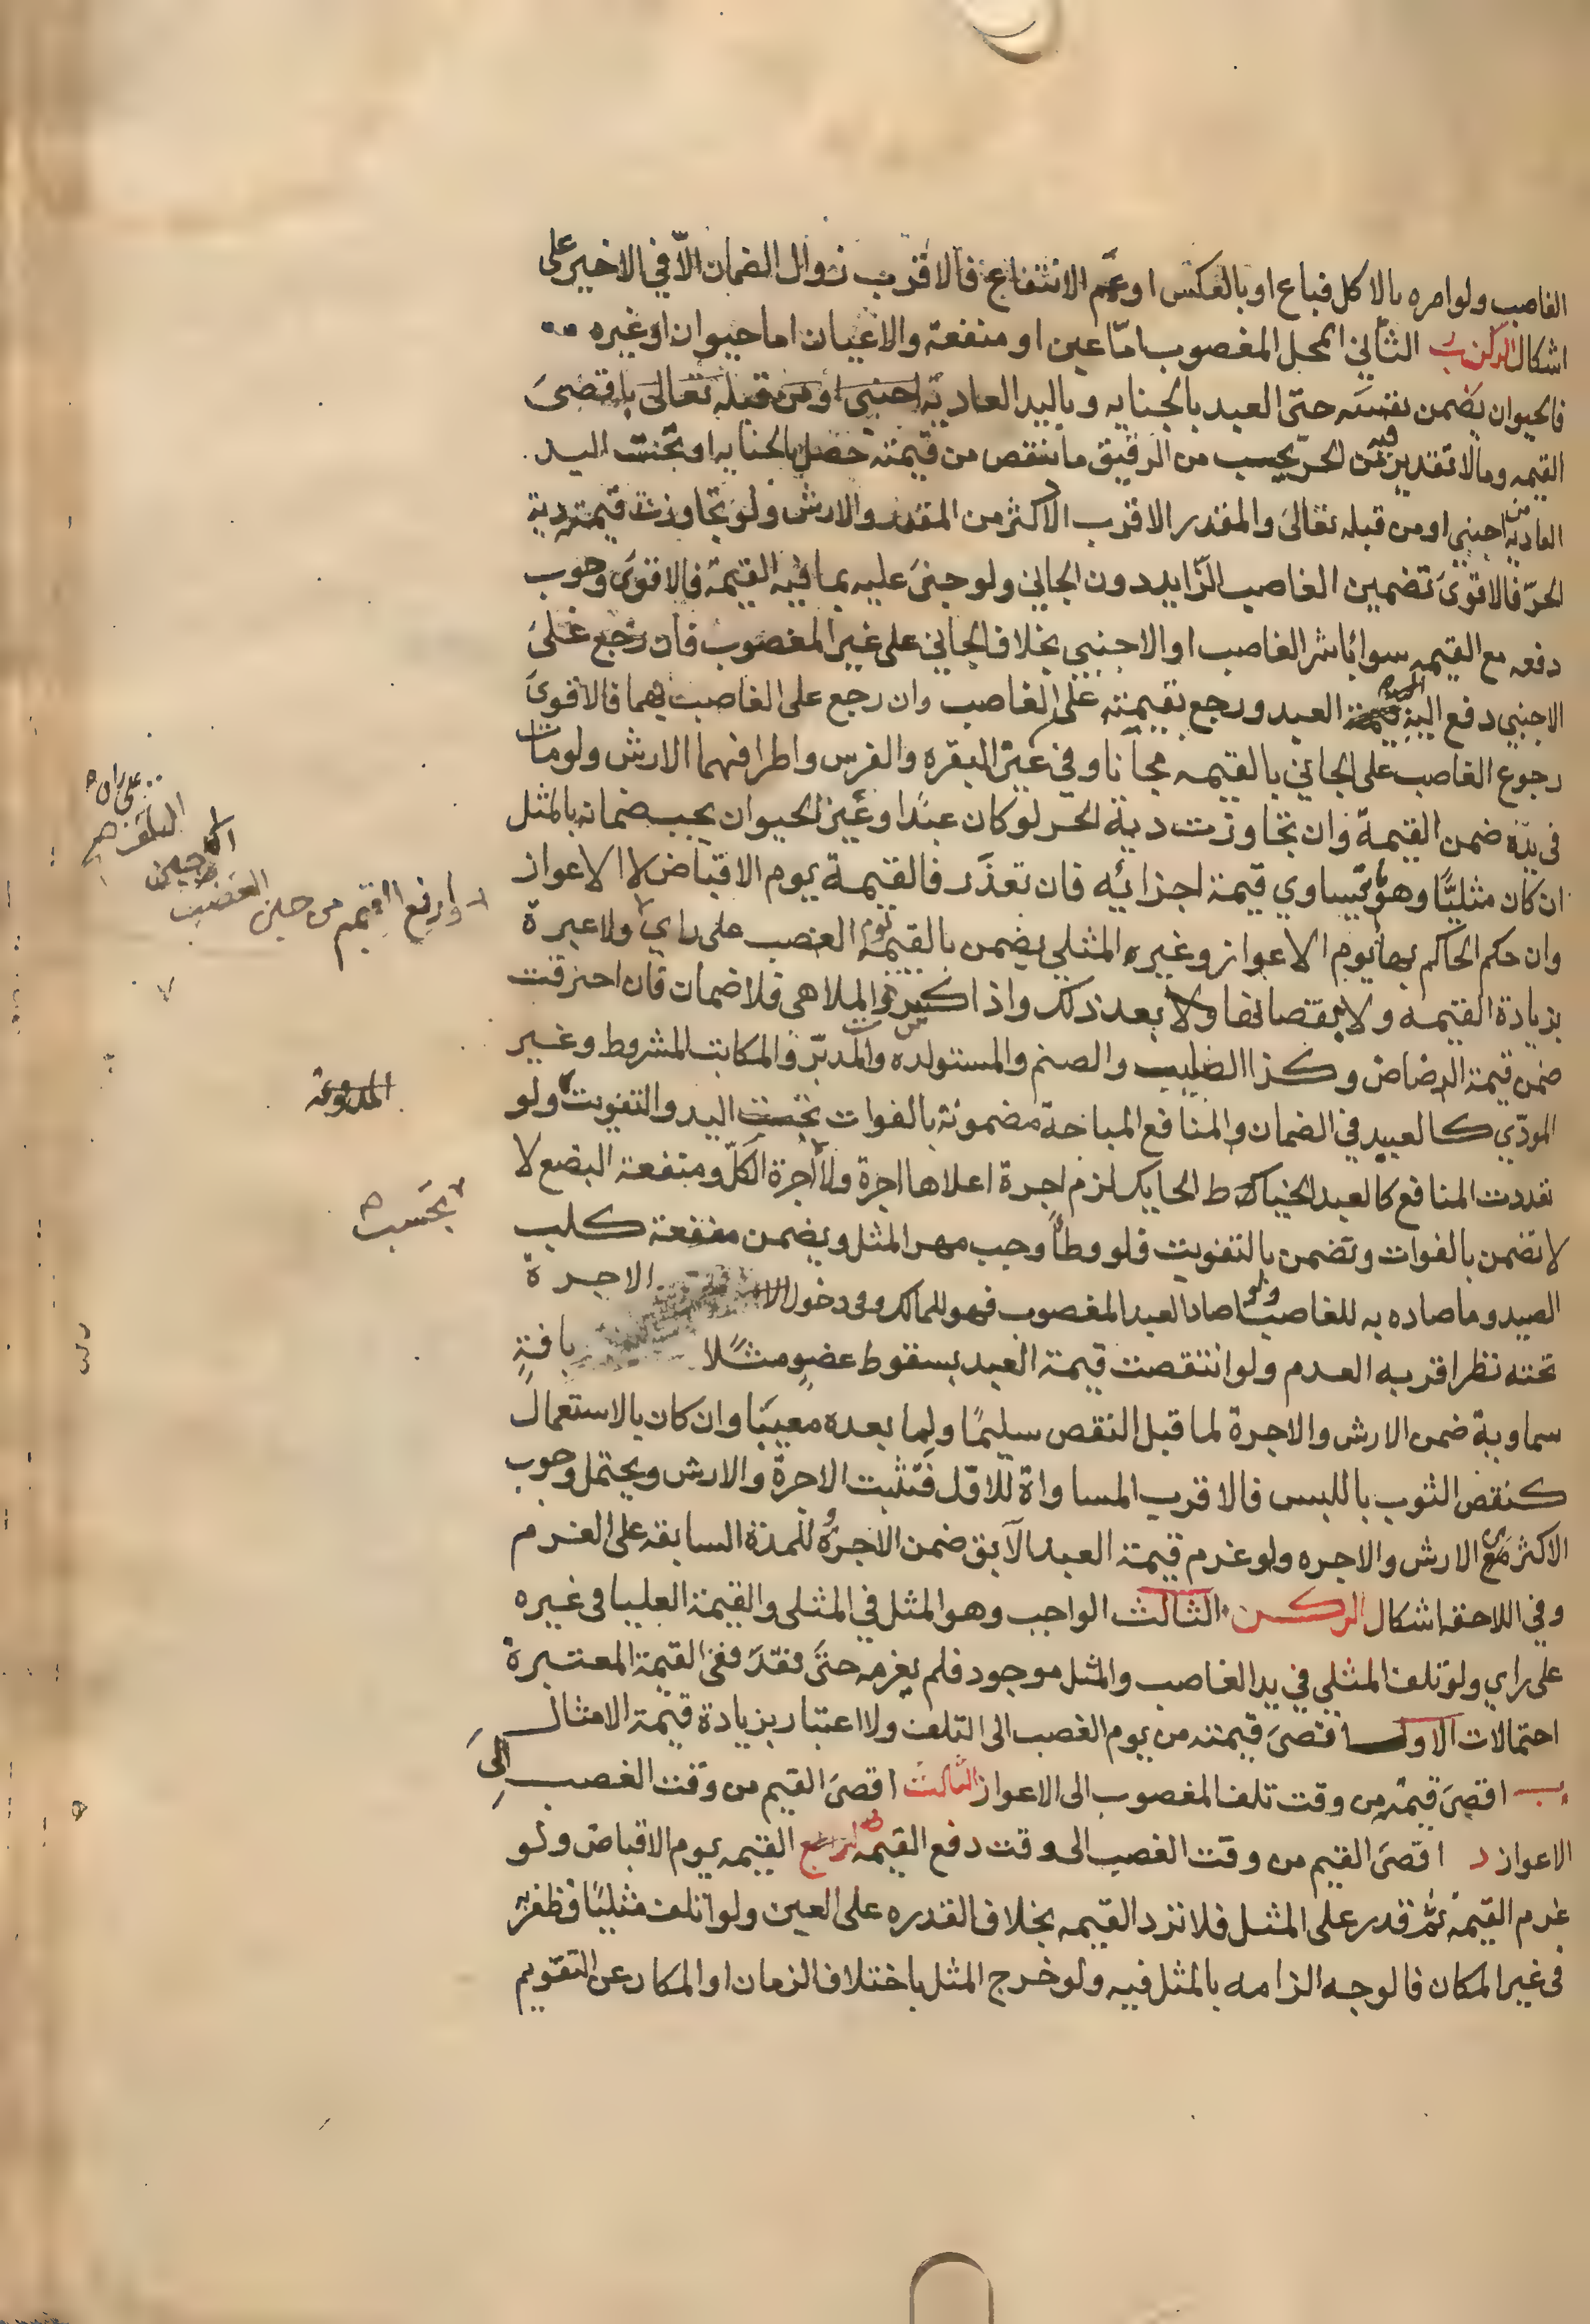 الغاصب ولو امره بالاكل فباع او بالعكس او عمم الانتفاع فالاقرب زوال الضمان الّا في الاخير على
اشكال الركن ب الثاني المحل المغصوب امّا عين او منفعة والاعيان اما حيوان او غيره
فالحيوان يضمن نفسه حتّى العبد بالجنايه وباليد العاديّه اجنبي او من قبله تعالىَ باقصىَ
القيمه ومالا تقدير فيه من الحرّ يجب من الرقيق ما ينقص من قيمته حصل بالجنايه او تحت اليد
العاديه من اجنبي او من قبله تعالىَ والمقدر الاقرب الاكثر من المقدر والارش ولو تجاوزت قيمته دية
الحرّ فالاقوىَ تضمين الغاصب الزّايد دون الجاني ولو جنىَ عليه بما فيه القيمة فالاقوىَ وجوب
دفعه مع القيمه سوا باشر الغاصب او الاجنبي بخلاف الجاني على غير المغصوب فان رجع علىَ
الاجنبي دفع اليه العبد ورجع بقيمته على الغاصب وان رجع على الغاصب بهما فالاقوىَ
رجوع الغاصب على الجاني بالقيمه مجانا وفي عين البقره والفرس واطرافهما الارش ولو مات
في يده ضمن القيمة وان تجاوزت دية الحر لو كان عبدًا وغير الحيوان يجب ضمانه بالمثل
ان كان مثليًّا وهو ما يتساوي قيمة اجزائه فان تعذّر فالقيمة يوم الاقباض لا الاعواز
وان حكم الحاكم بها يوم الاعواز وغيره المثلي يضمن بالقيمة يوم الغصب على راي ولا عبرة
بزيادة القيمه ولا بنقصانها ولا بعد ذلك واذا كسر الملاهي فلا ضمان فان احرقت
ضمن قيمة الرضاض وكذا الصليب والصنم والمستولده والمدبّر والمكاتب المشروط وغير
المودّي كالعبيد في الضمان والمنافع المباحة مضمونة بالفوات تحت اليد والتفويت ولو
تعددت المنافع كالعبد الخياط الحايك لزم اجرة اعلاها اجرة ولا اجرة الكلّ ومنفعة البضع لا
لا تضمن بالفوات وتضمن بالتفويت فلو وطأ وجب مهر المثل ويضمن منفعة كلب
الصيد وما صاده به للغاصب ولو اصاد العبد المغصوب فهو للمالك وفي دخول الاجرة
تحته نظر اقربه العدم ولو انتقصت قيمة العبد بسقوط عضوٍ مثلًا بافةٍ
سماوية ضمن الارش والاجرة لما قبل النقص سليمًا ولما بعده معيبًا وان كان بالاستعمال
كنقص الثوب باللبس فالاقرب المساواة للاوّل فتثبت الاجرة والارش ويحتمل وجوب
الاكثر من الارش والاجره ولو غرم قيمة العبد الآبق ضمن الاجرة للمدّة السابقه على الغرم
وفي اللاحقه اشكال الركن الثالث الواجب وهو المثل في المثلى والقيمة العليا في غيره
على راي ولو تلف المثلي في يد الغاصب والمثل موجود فلم يغرمه حتّى فقدَ ففي القيمة المعتبرة
احتمالات الاول اقصىَ قيمته من يوم الغصب الى التلف ولا اعتبار بزيادة قيمة الامثال
ب اقصىَ قيمته من وقت تلف المغصوب الى الاعواز الثالث اقصىَ القيم من وقت الغصب الىَ
الاعواز د اقصىَ القيم من وقت الغصب الى وقت دفع القيمه القيمه يوم الاقباض ولو
غرم القيمة ثم قدر على المثل فلا تردّ القيمه بخلاف القدره على العين ولو اتلف مثليًا فظفر به
في غير المكان فالوجه الزامه بالمثل فيه ولو خرج المثل باختلاف الزمان او المكان عن التقويم
وارفع القيم من حين الغصب
الى حين
التلف
على راي
يحسب